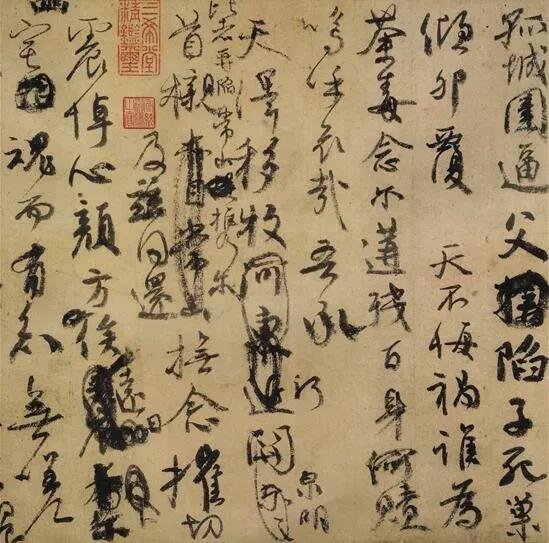 孤城圍逼父擒陷子死巢
傾卵覆 天不悔禍誰為
荼毒念爾遘殘百身何贖
嗚呼哀哉 吾承
天澤移牧河東近 河關
泉明
比者再陷常山攜爾
首櫬亦自常山 及茲同還 撫念摧切
震悼心顏方俟遠日
宅魂而有知無嗟
三希堂
精鑑璽